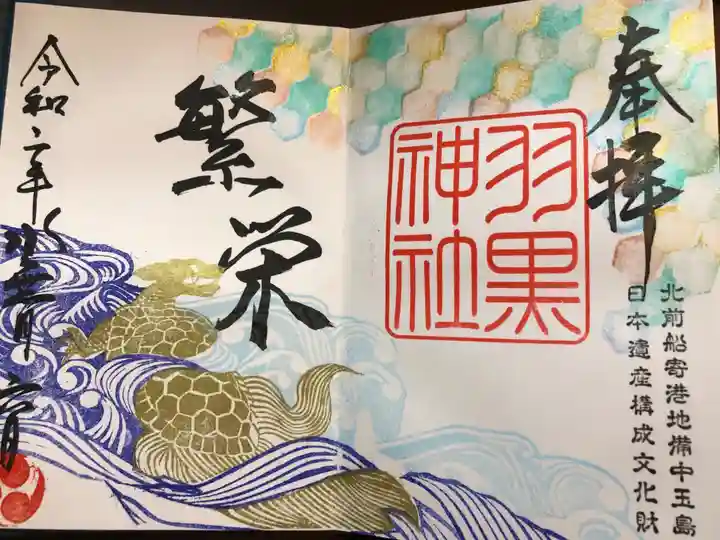 奉拝
北前船寄港地備中玉島
日本遺産構成文化財
羽黒
神社
繁栄
令和二年水無月